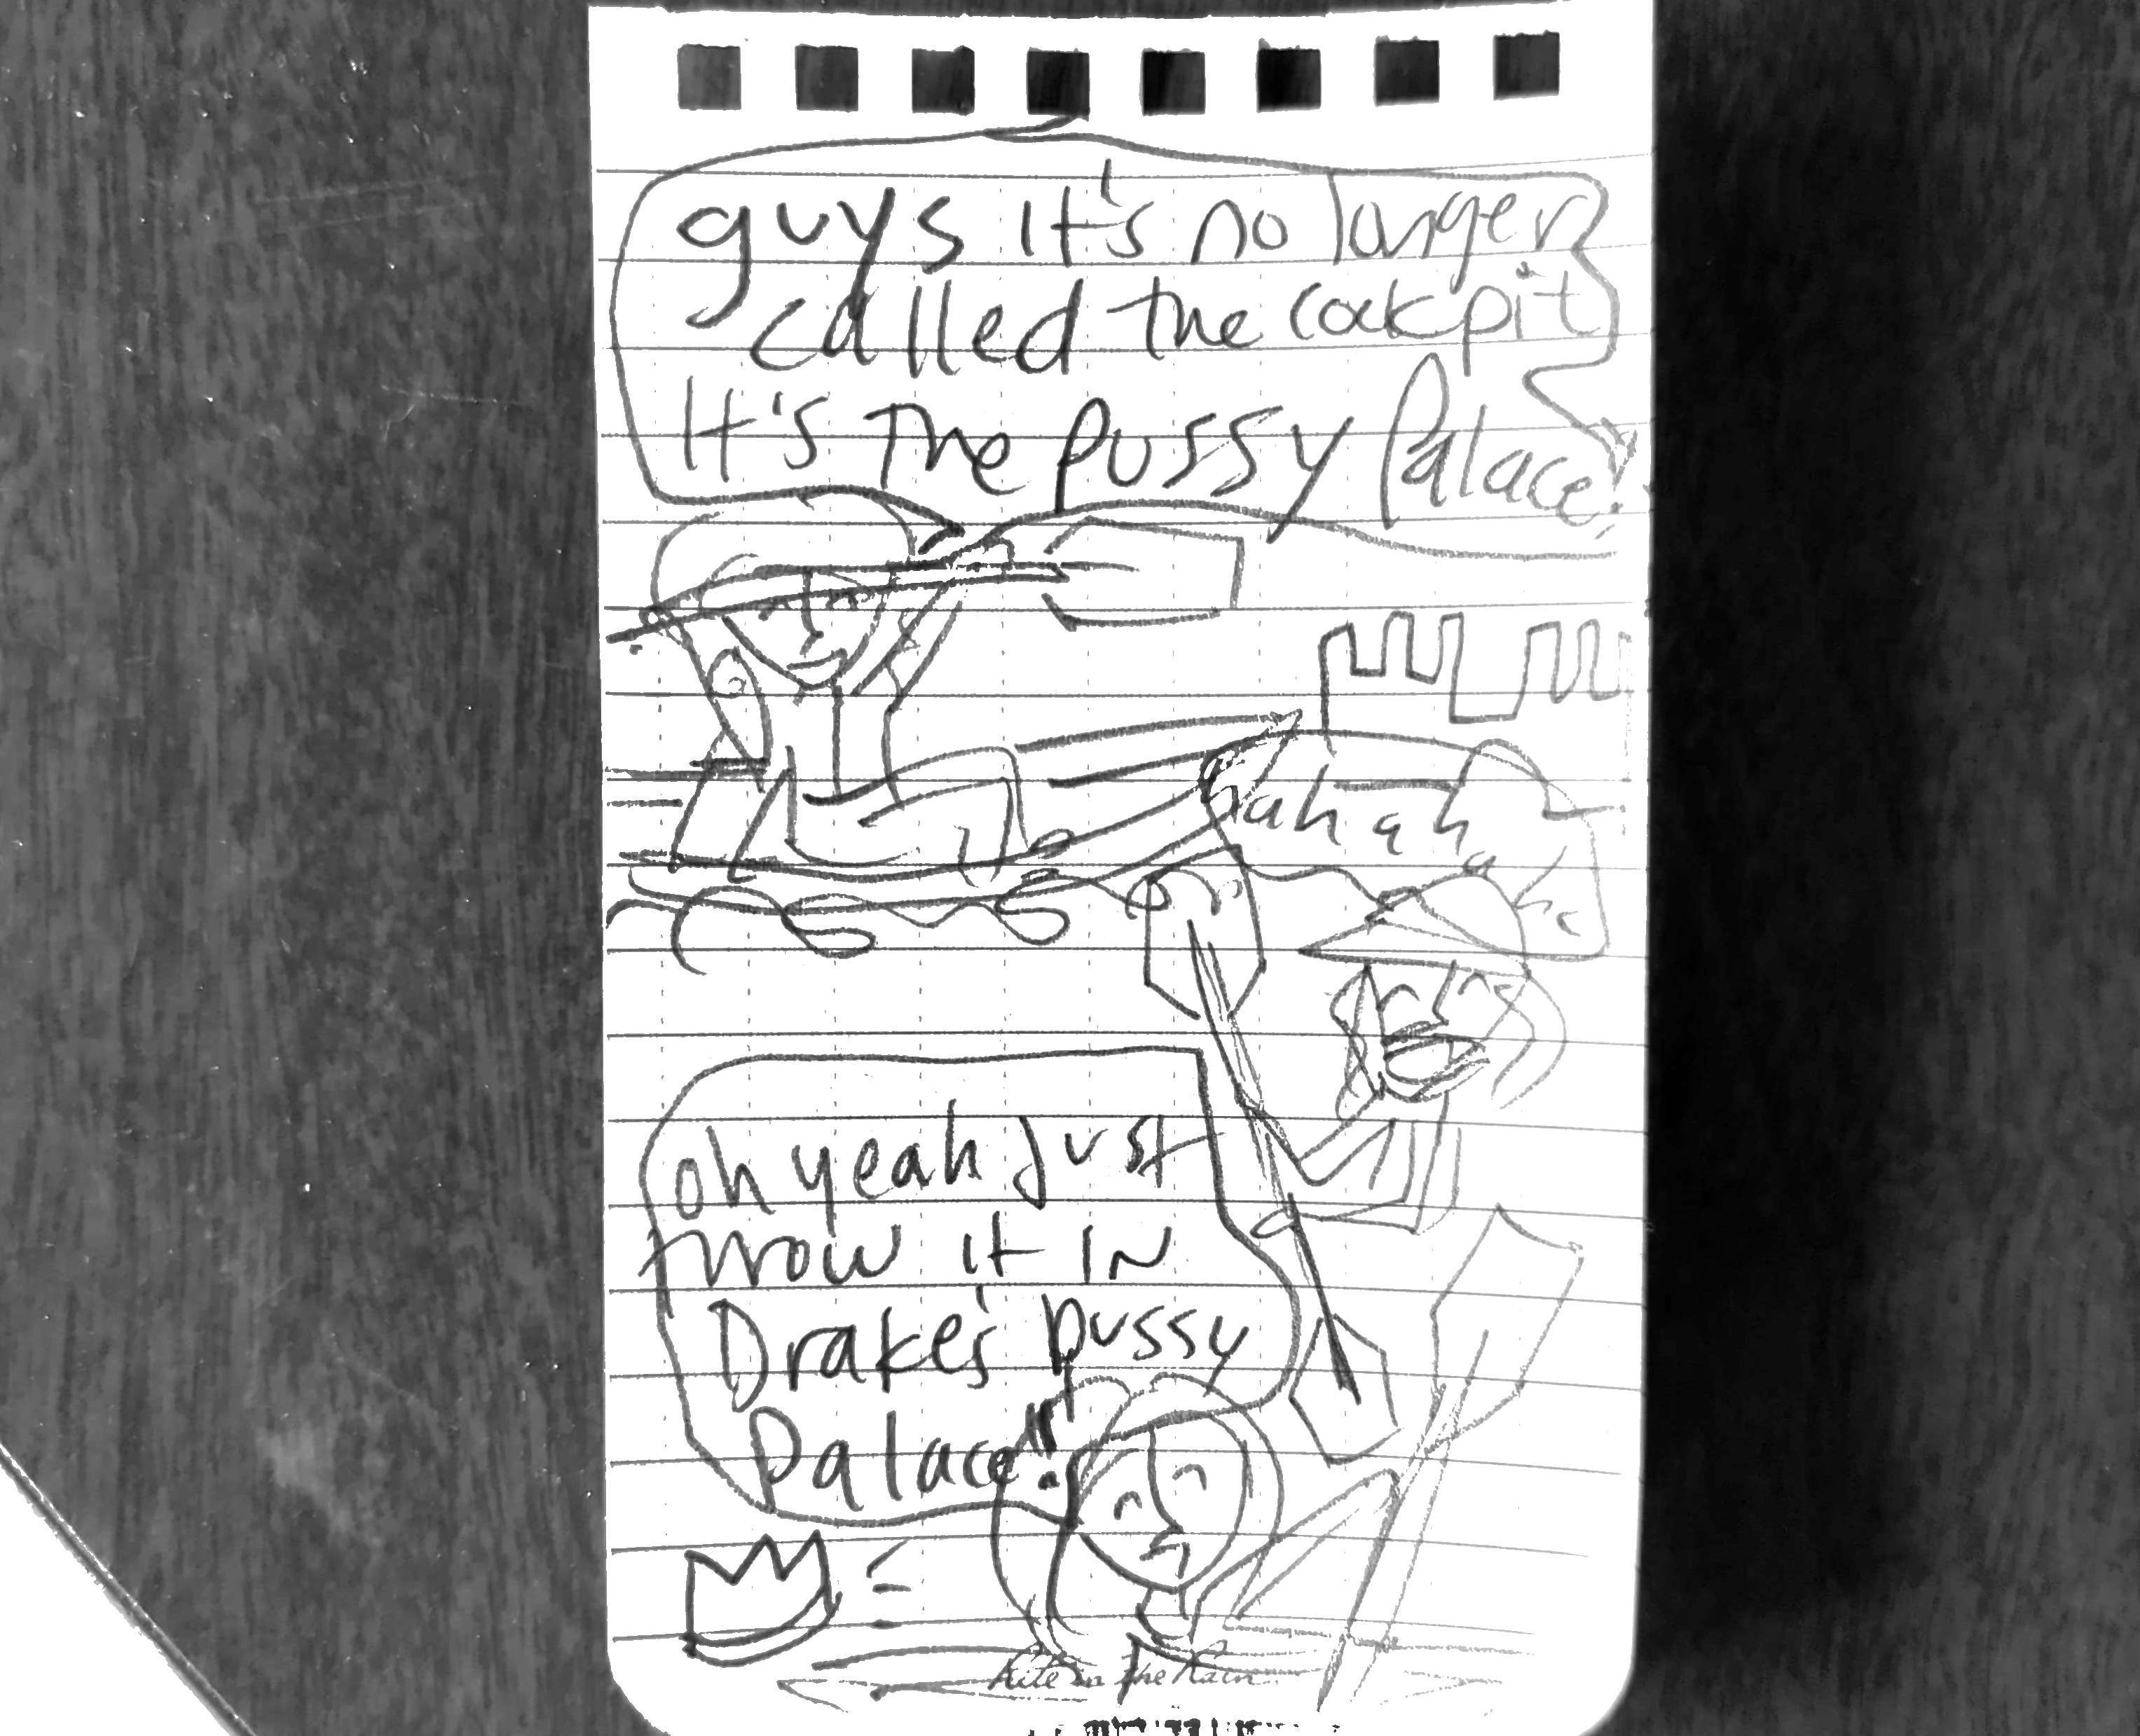 guys it's no longer
called the cockpit
It's The pussy Palace!
hahahaha
oh yeah just
throw it in
Drake's pussy
Palace!!
Rite in the Rain